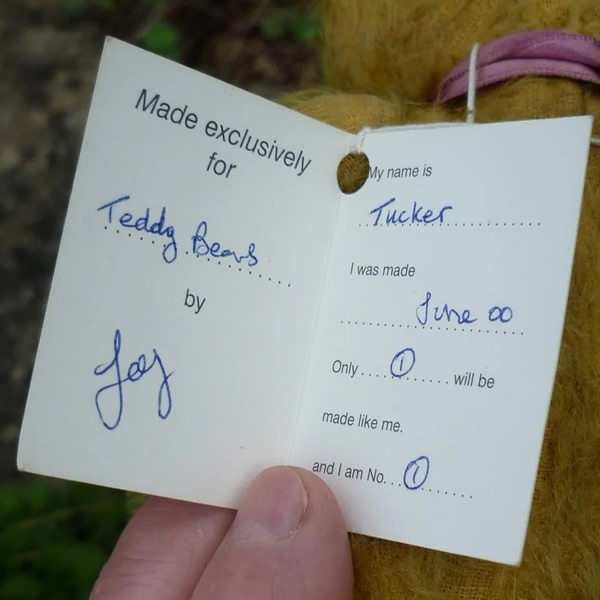 Made exclusively
for
Teddy Bears
by
Joy
My name is
Tucker
I was made
June 00
Only 1 will be
made like me.
and I am No. 1